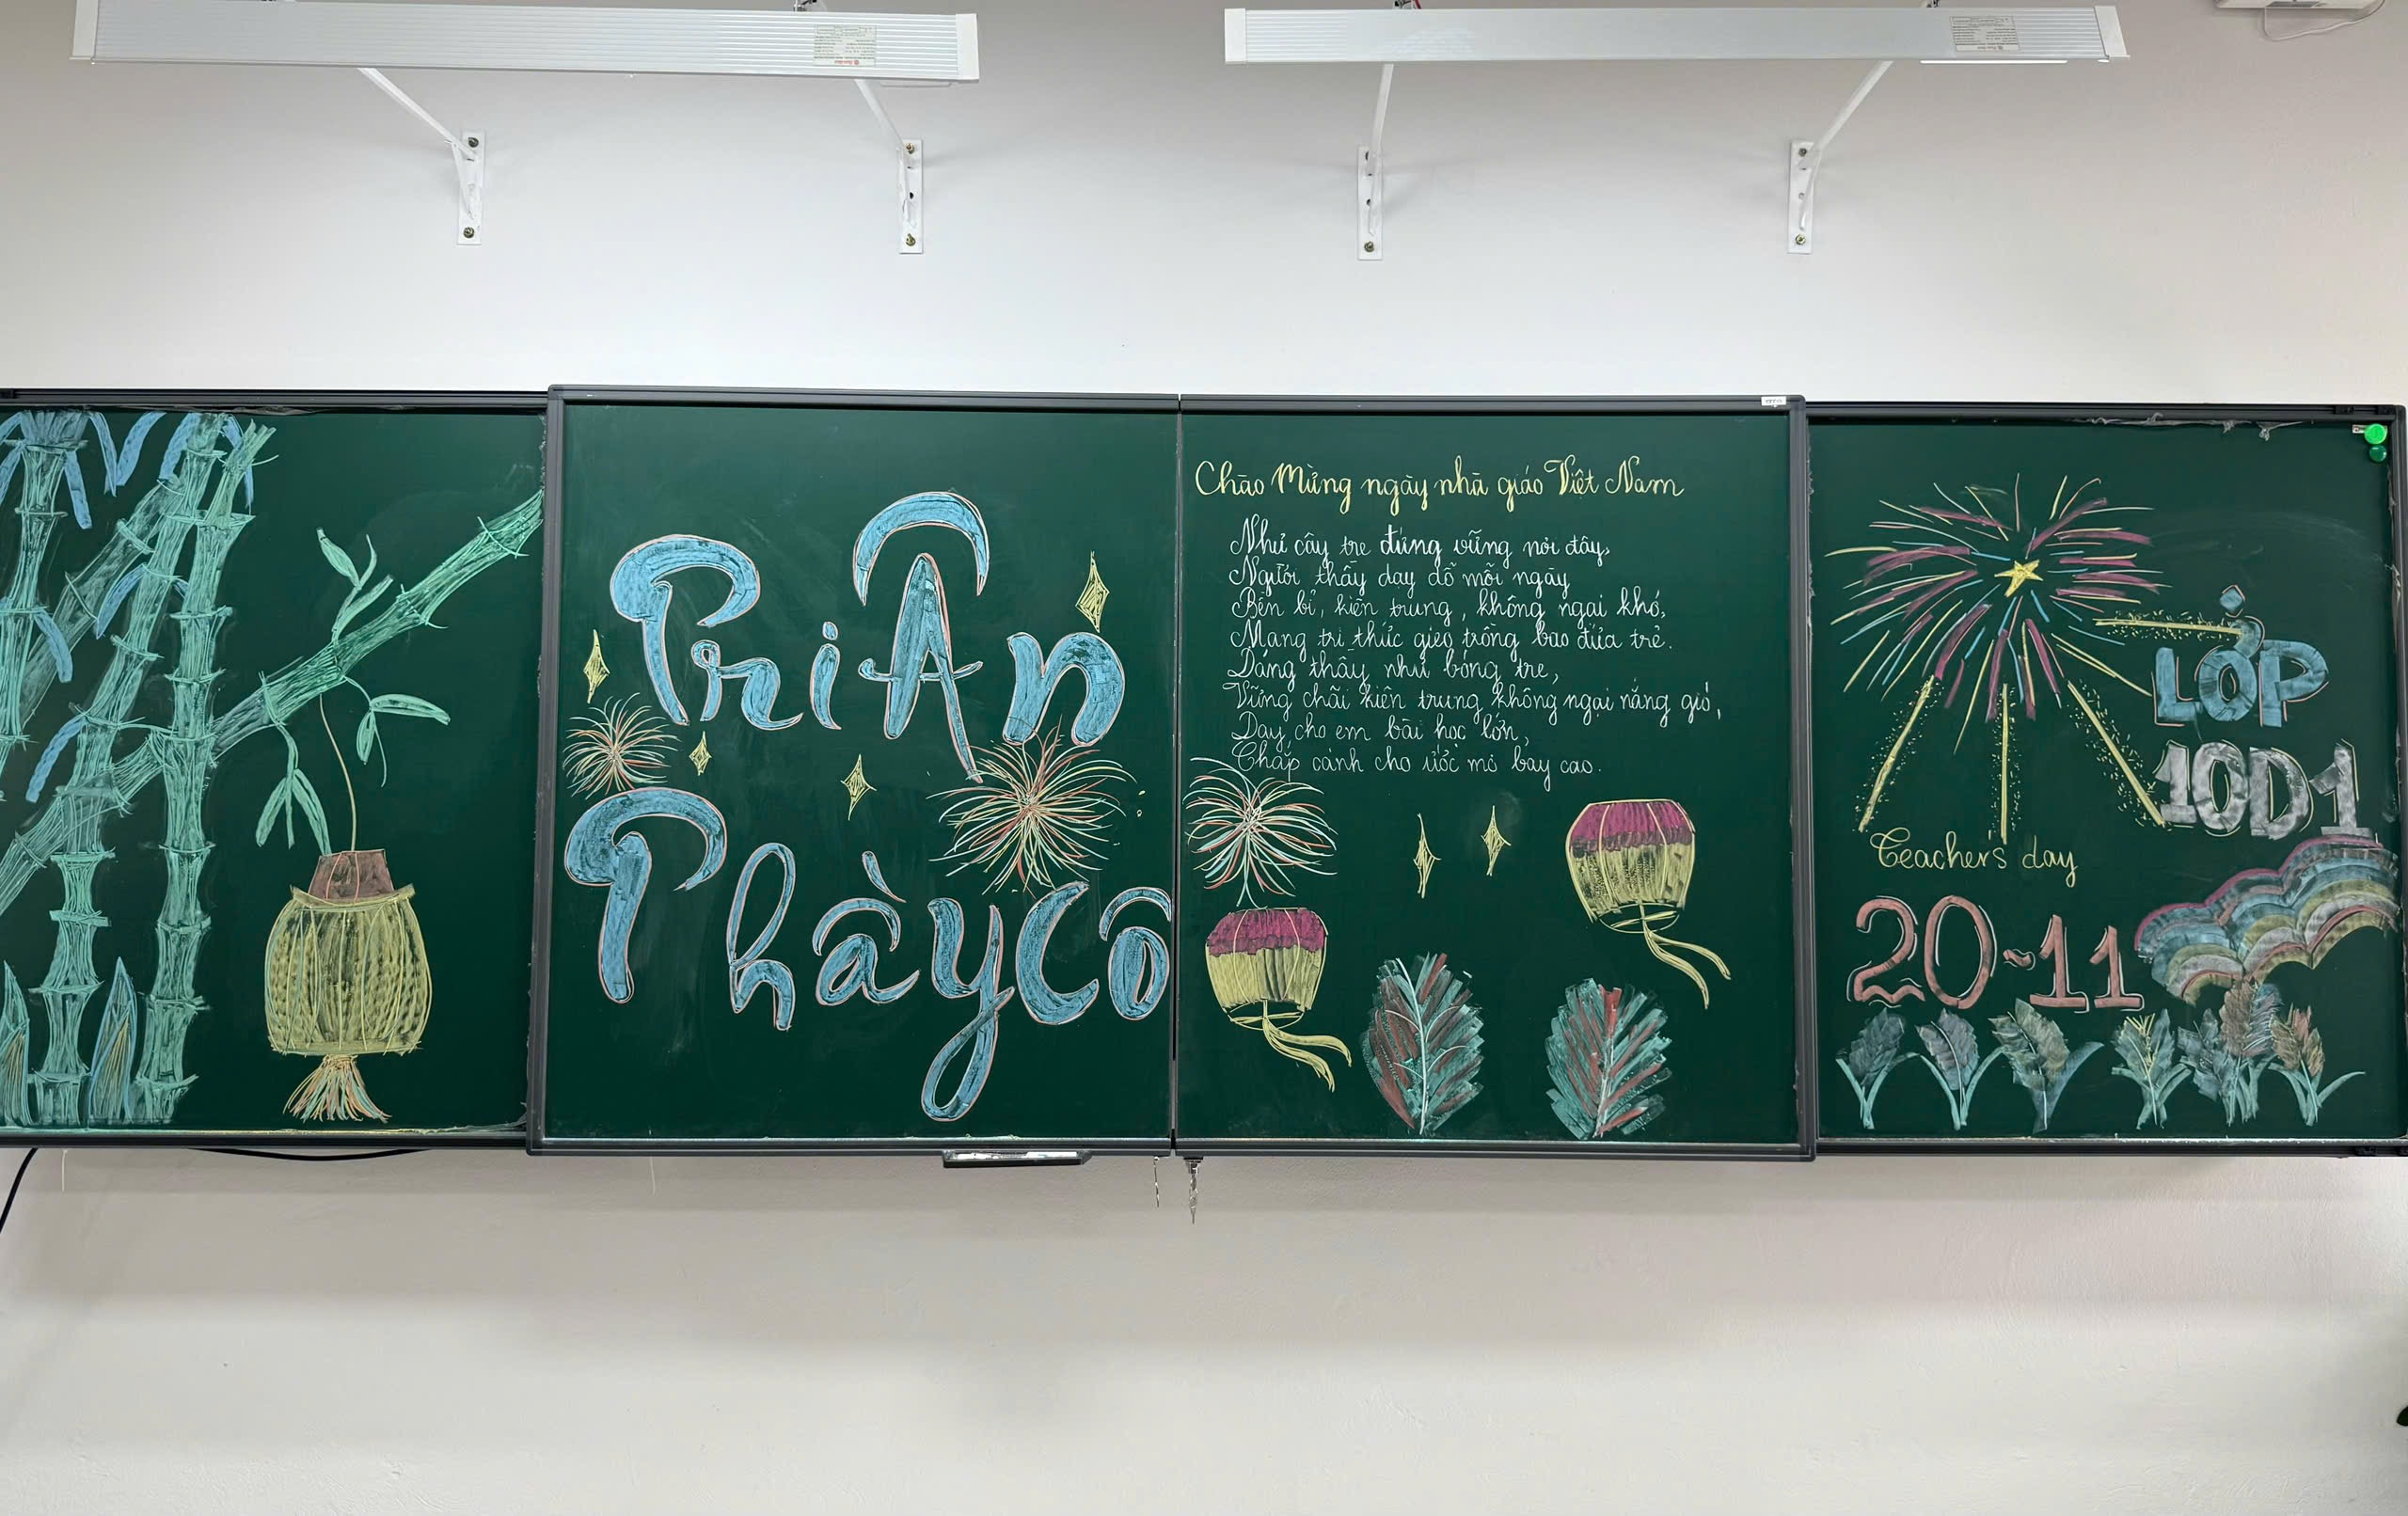 Tri Ân
Thầy Cô
Chào Mừng ngày nhà giáo Việt Nam
Như cây tre đứng vững nơi đây,
Người thầy dạy dỗ mỗi ngày
Bền bỉ, kiên trung, không ngại khó,
Mang tri thức gieo trồng bao đứa trẻ.
Dáng thầy như bóng tre,
Vững chãi kiên trung không ngại nắng gió,
Dạy cho em bài học lớn,
Chắp cánh cho ước mơ bay cao.
LỚP
10D1
Teacher's day
20-11